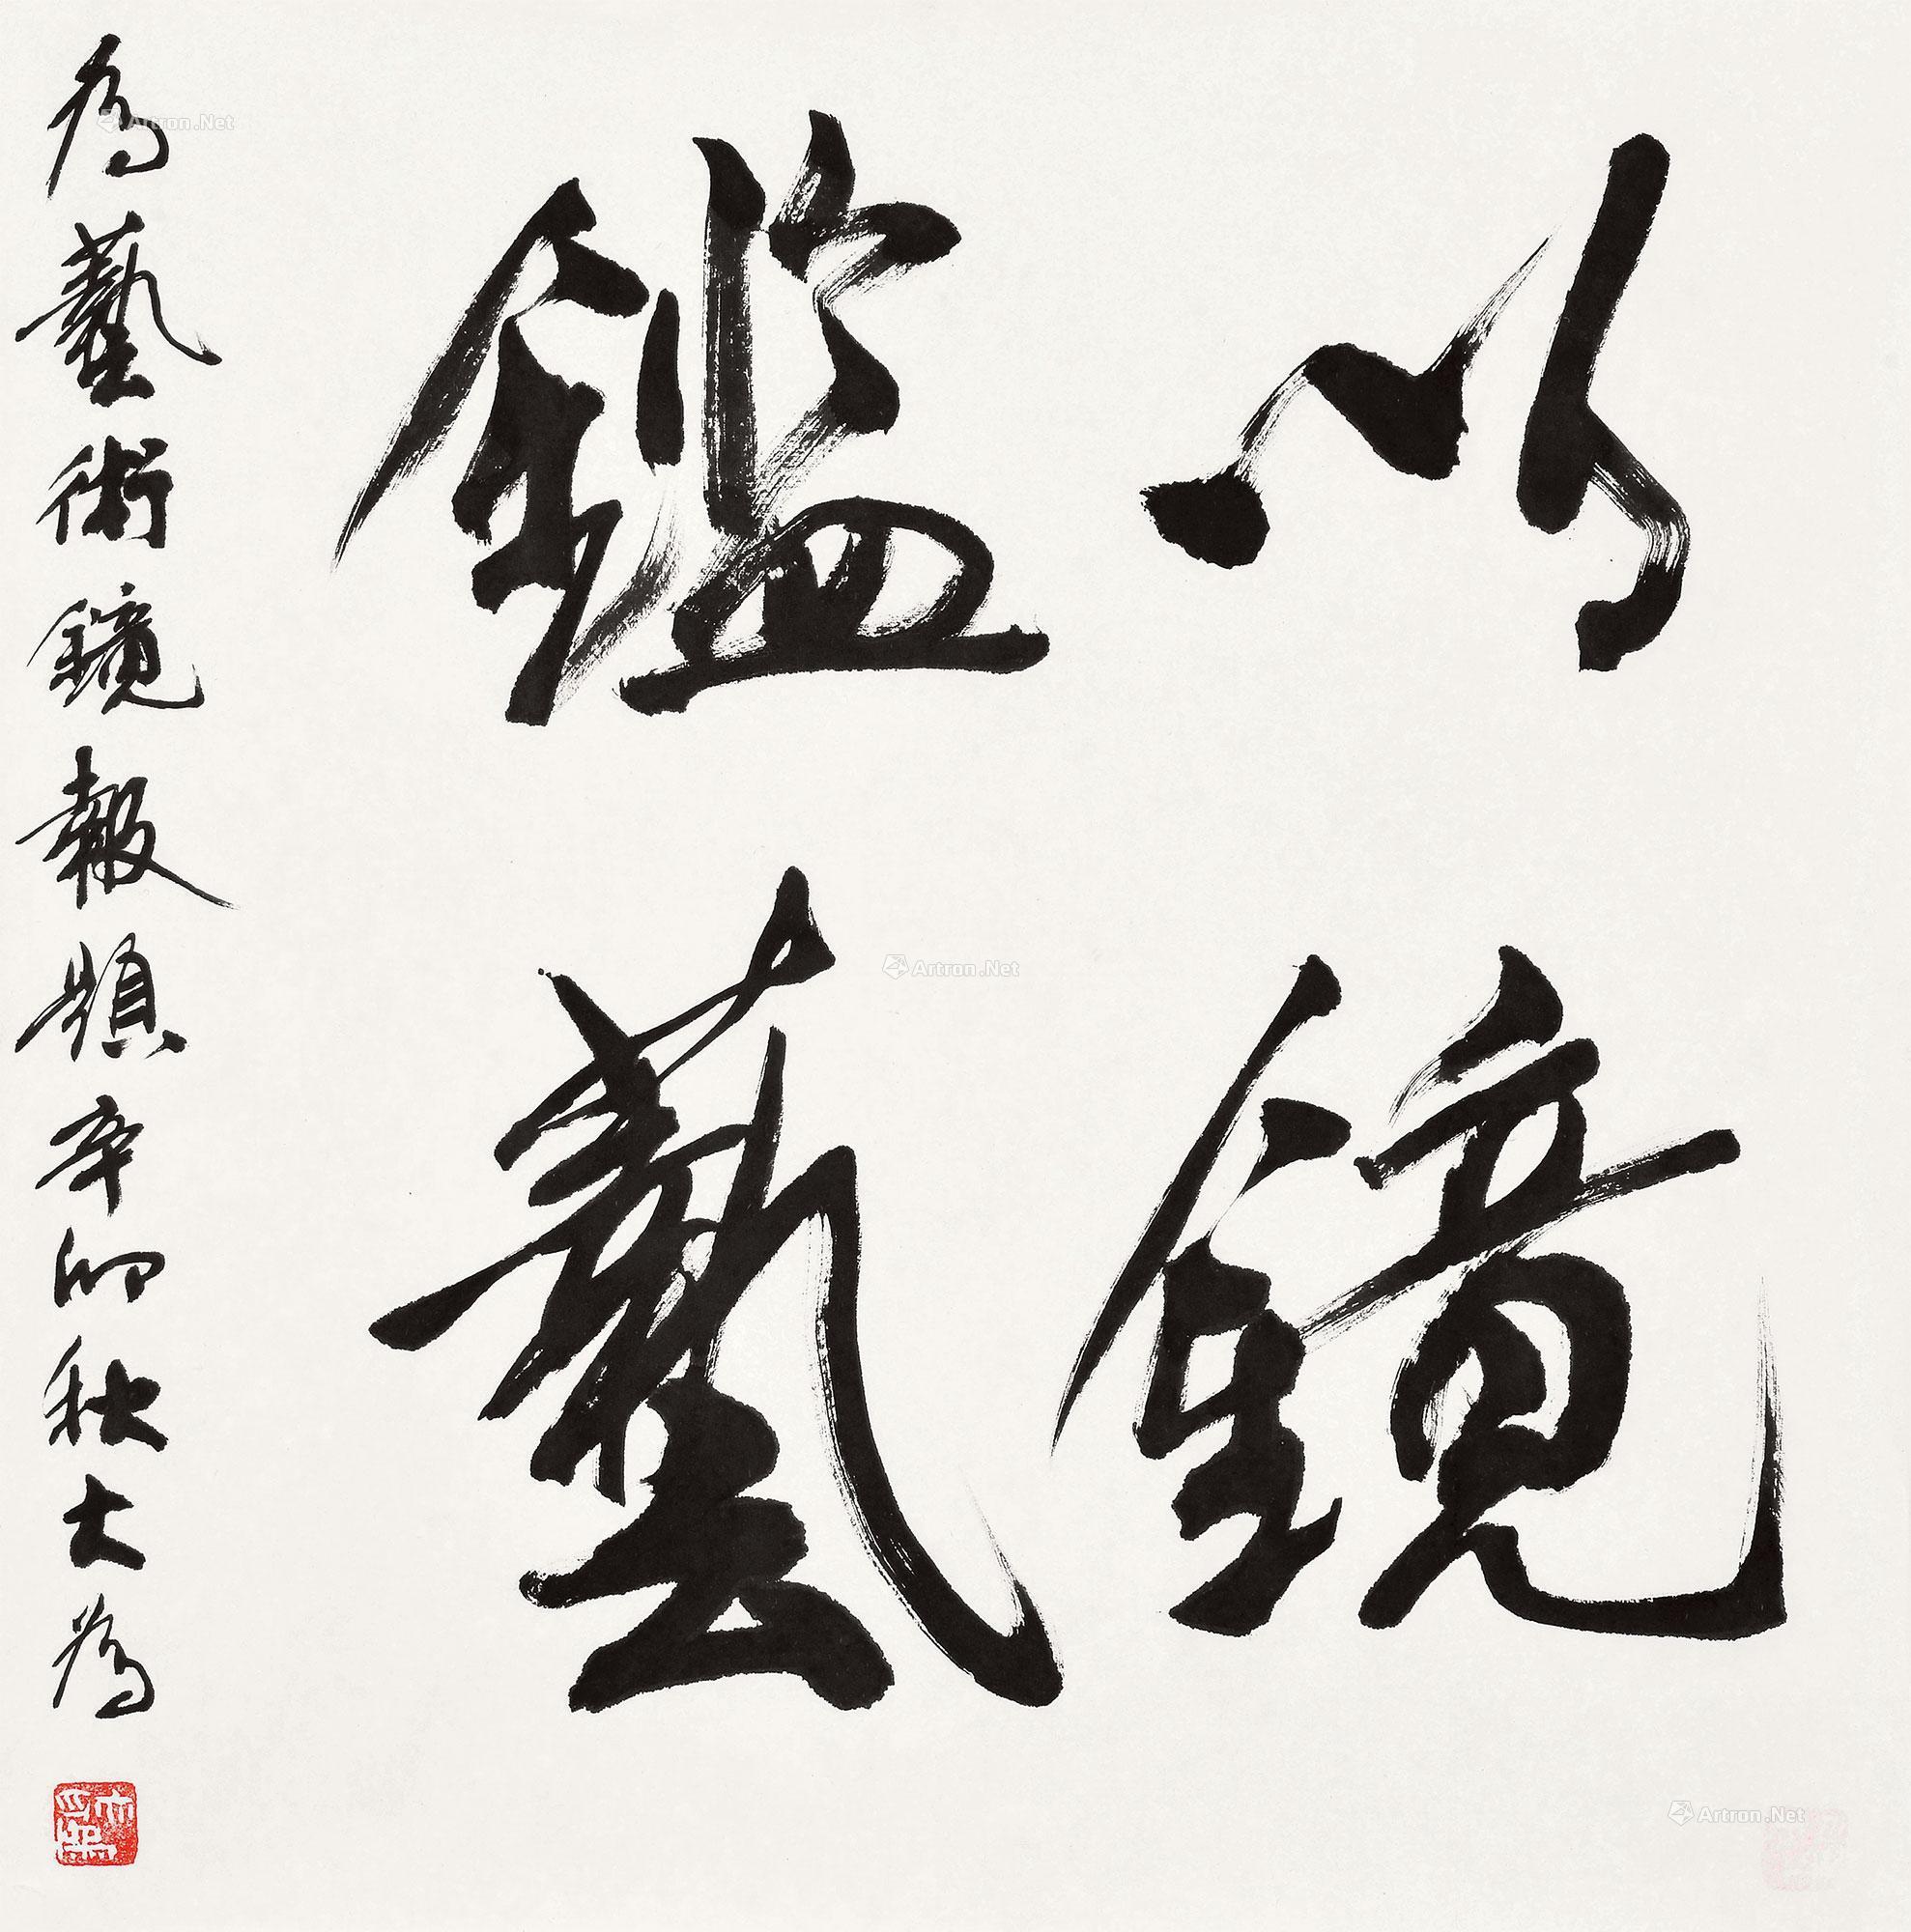 以鏡
鑑藝
為藝術鏡報題辛卯秋大為
Artron.Net
Artron.Net
Artron.Net